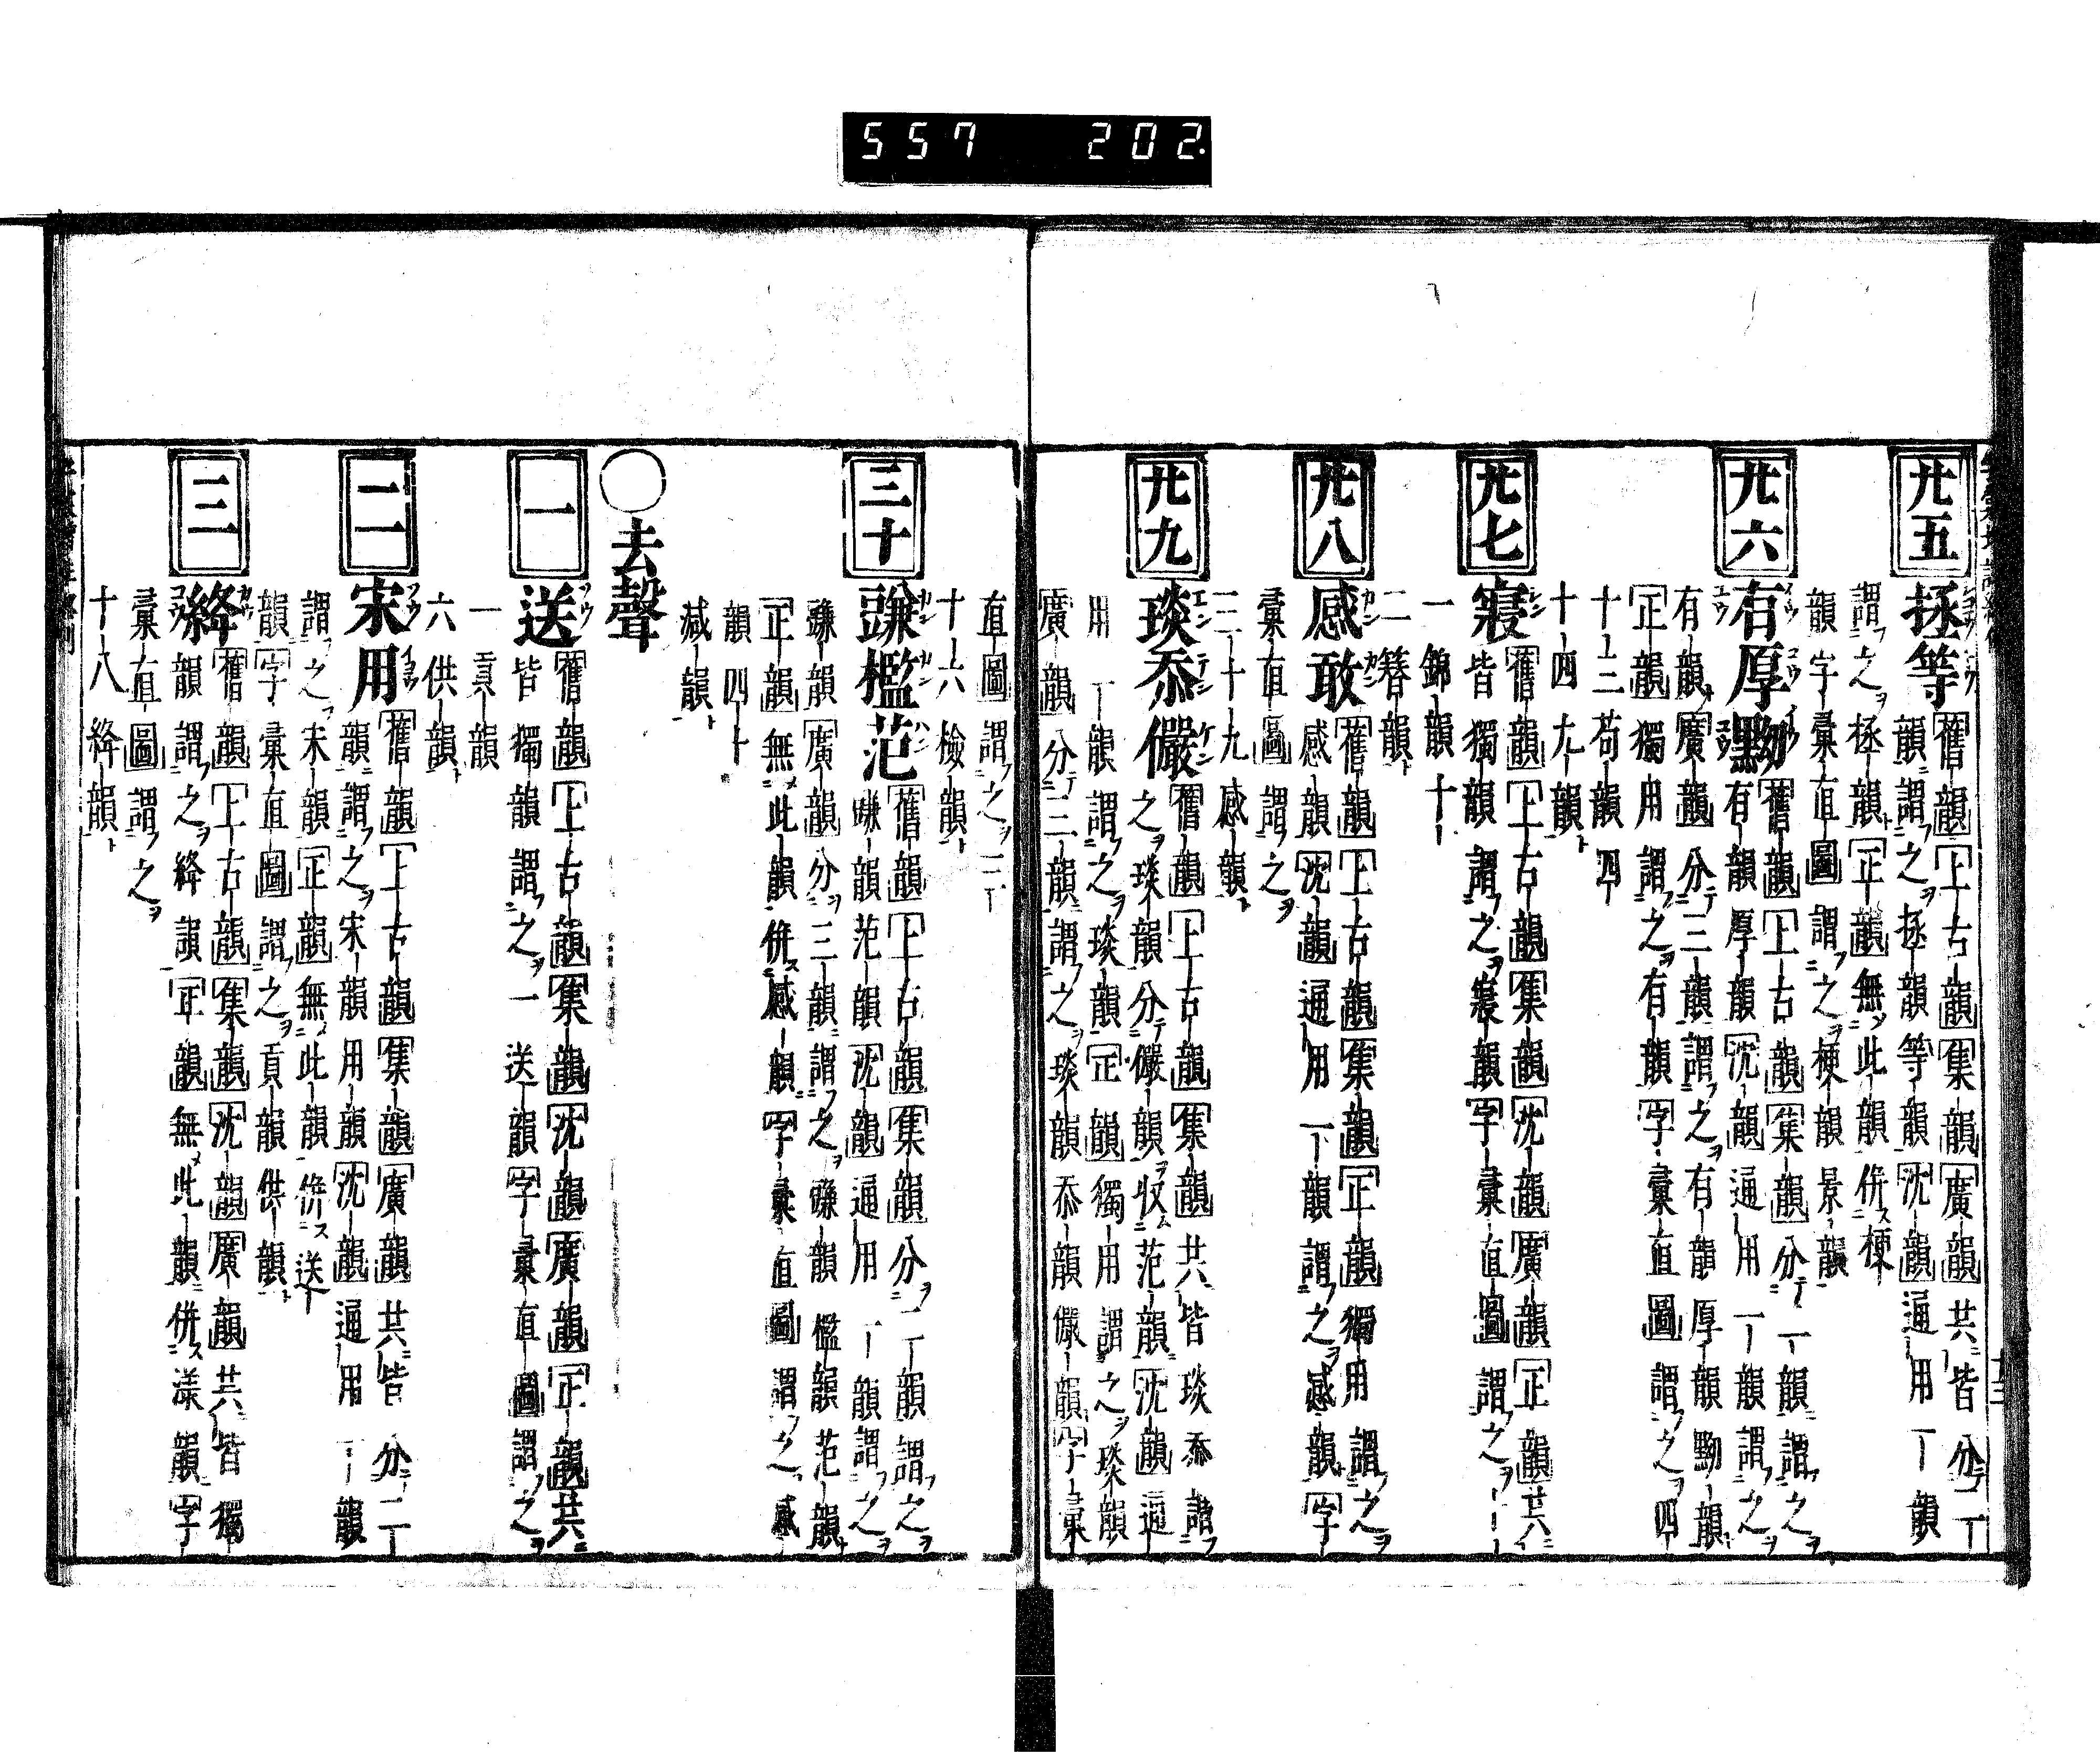 557 202.
廿五 拯等
舊韻上古韻集韻廣韻共皆分二
韻謂之拯韻等韻沈韻通用一韻
謂之拯韻正韻無此韻併梗
韻字彙直圖謂之梗韻景韻
廿六 有厚黝
舊韻上古韻集韻分一韻謂之
有韻厚韻沈韻通用一韻謂之
有韻廣韻分三韻謂之有韻厚韻黝韻
正韻獨用謂之有韻字彙直圖謂之四
十三苟韻四
十四九韻
廿七 寢
舊韻上古韻集韻沈韻廣韻正韻共
皆獨韻謂之寢韻字彙直圖謂之
一錦韻十
二簪韻
廿八 感敢
舊韻上古韻集韻正韻獨用謂之
感韻沈韻通用一韻謂之感韻字
彙直圖謂之
三十九感韻
廿九 琰忝儼
舊韻上古韻集韻共皆琰忝謂
之琰韻分儼韻收范韻沈韻通
用一韻謂之琰韻正韻獨用謂之琰韻
廣韻分三韻謂之琰韻忝韻儼韻字彙
直圖謂之三
十六檢韻
三十 豏檻范
舊韻上古韻集韻分二韻謂之
豏韻范韻沈韻通用一韻謂之
豏韻廣韻分三韻謂之豏韻檻韻范韻
正韻無此韻併感韻字彙直圖謂之感
韻四十
減韻
○去聲
一 送
舊韻上古韻集韻沈韻廣韻正韻共
皆獨韻謂之一送韻字彙直圖謂之
一貢韻
六供韻
二 宋用
舊韻上古韻集韻廣韻共皆分二
韻謂之宋韻用韻沈韻通用一韻
謂之宋韻正韻無此韻併送
韻字彙直圖謂之貢韻供韻
三 絳
舊韻上古韻集韻沈韻廣韻共皆獨
韻謂之絳韻正韻無此韻併漾韻字
彙直圖謂之
十八絳韻